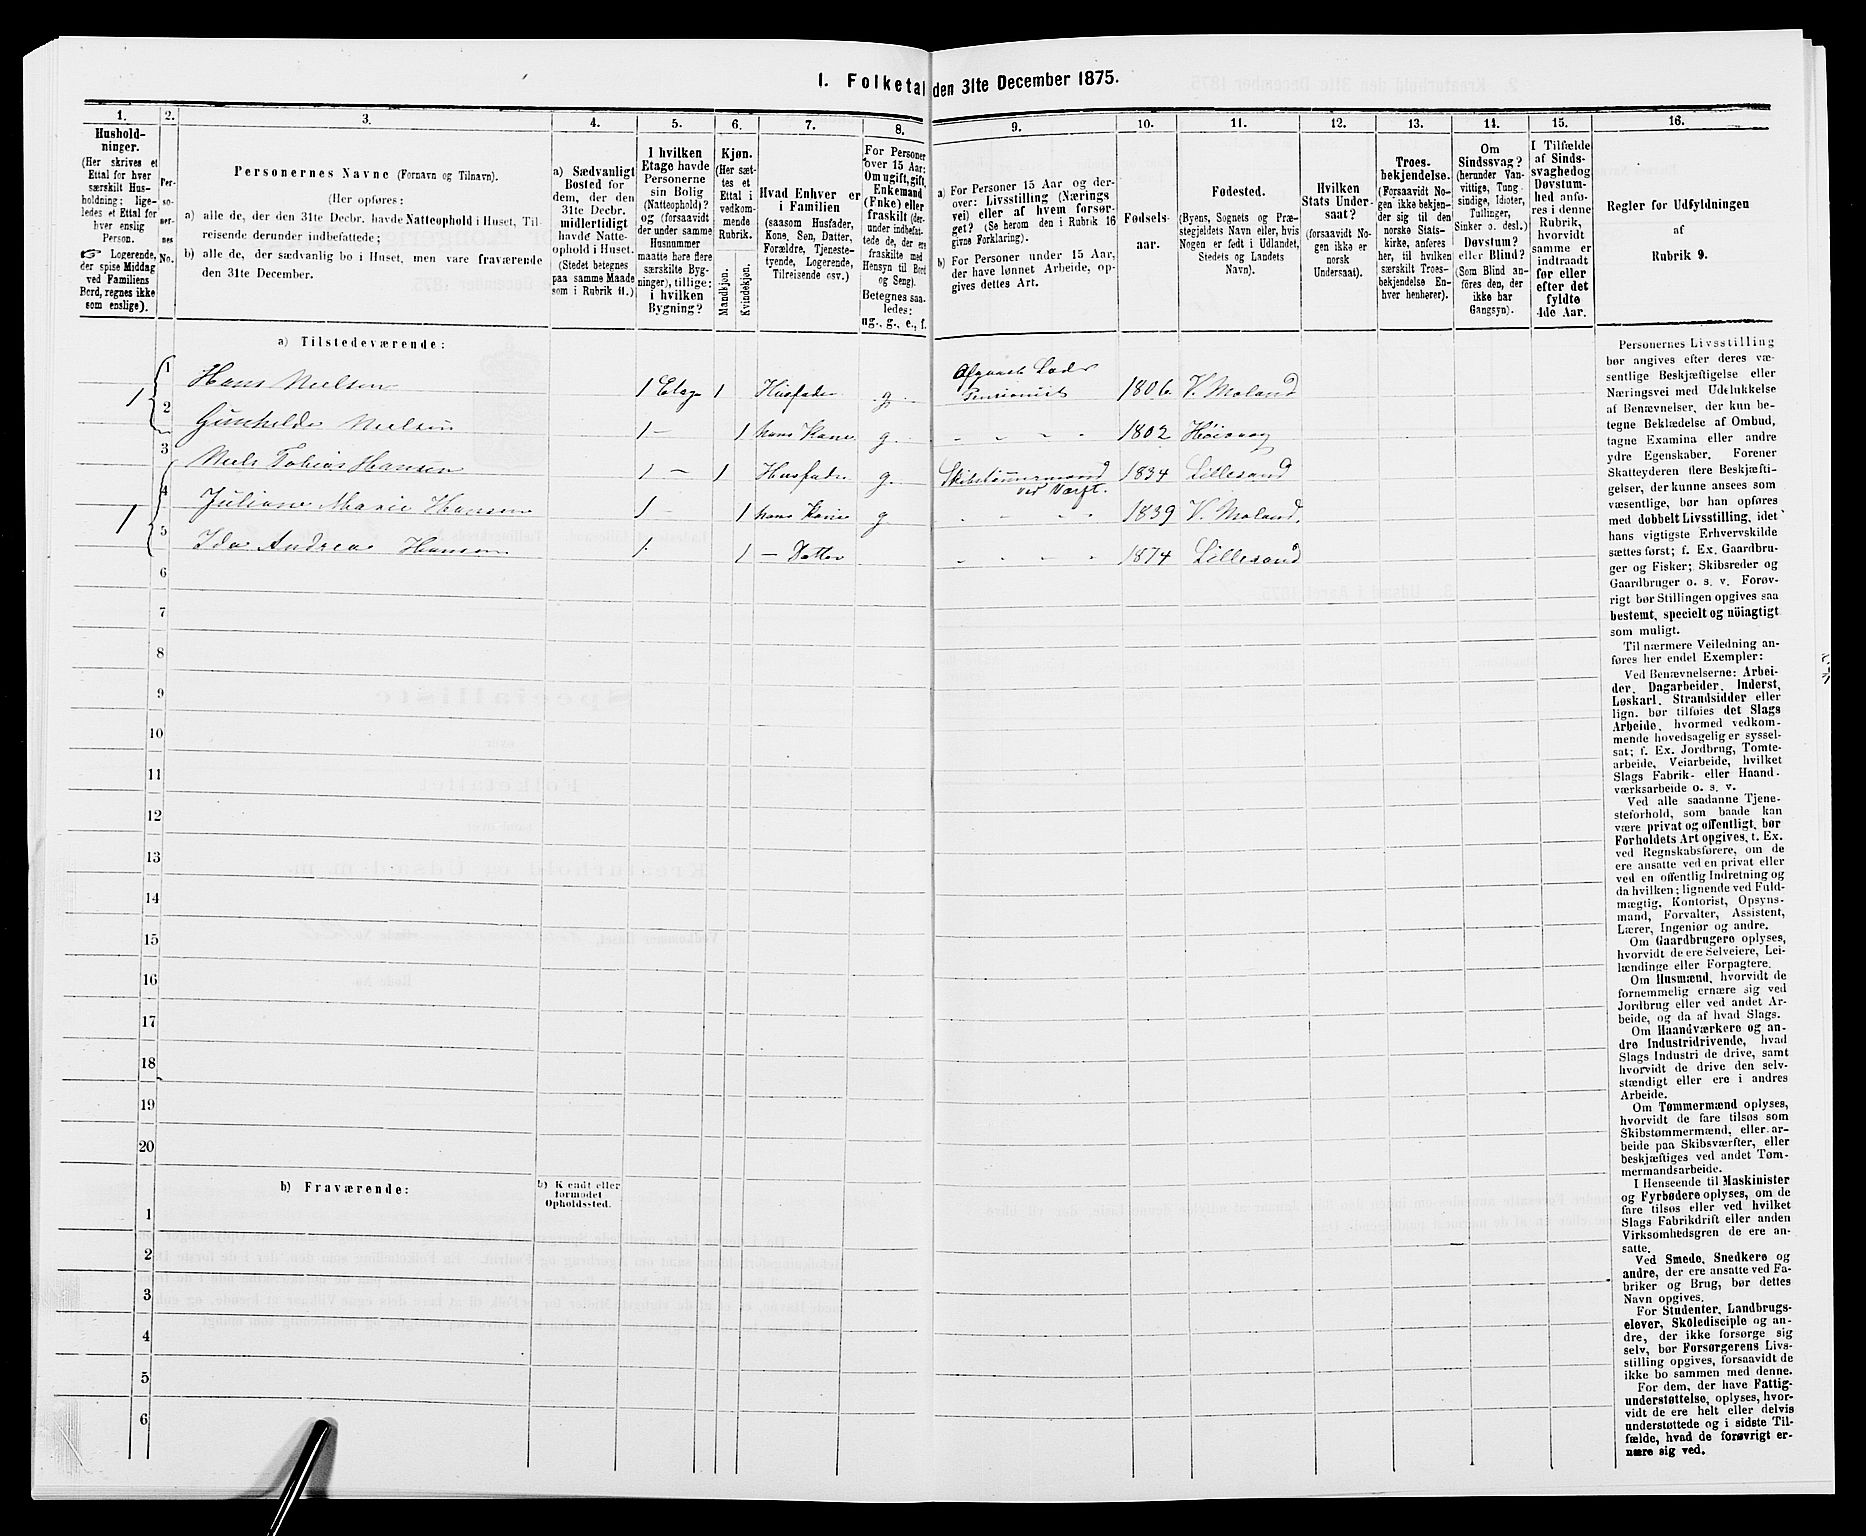 1. Folketal den 31te December 1875.
1. 2. 3. 4. 5. 6. 7. 8. 9. 10. 11. 12. 13. 14. 15. 16.
Hushold-
ninger.
(Her skrives et
Ettal for hver
særskilt Hus-
holdning; lige-
ledes et Ettal for
hver enslig
Person.
☞ Logerende,
der spise Middag
ved Familiens
Bord, regnes ikke
som enslige).
Per-
so-
ner-
nes
No.
Personernes Navne (Fornavn og Tilnavn).
(Her opføres:
a) alle de, der den 31te Decbr. havde Natteophold i Huset, Til-
reisende derunder indbefattede;
b) alle de, der sædvanlig bo i Huset, men vare fraværende
den 31te December.
a) Sædvanligt
Bosted for
dem, der den
31te Decbr.
midlertidigt
havde Natte-
ophold i Huset.
(Stedet betegnes
paa samme Maade
som i Rubrik 11.)
I hvilken
Etage havde
Personerne
sin Bolig
(Natteophold)?
og (forsaavidt
der under samme
Husnummer
maatte høre flere
særskilte Byg-
ninger), tillige:
i hvilken
Bygning?
Kjøn.
(Her sæt-
tes et
Ettal i
vedkom-
mende
Rubrik.
Mandkjøn.
Kvindekjøn.
Hvad Enhver er
i Familien
(saasom Husfader,
Kone, Søn, Datter,
Forældre, Tjeneste-
tyende, Logerende,
Tilreisende osv.)
For Personer
over 15 Aar:
Om ugift, gift,
Enkemand
(Enke) eller
fraskilt (der-
under indbefat-
tede de, der ere
fraskilte med
Hensyn til Bord
og Seng).
Betegnes saa-
ledes:
ug., g., e., f.
a) For Personer 15 Aar og der-
over: Livsstilling (Nærings-
vei) eller af hvem forsør-
get? (Se herom den i Rubrik 16
givne Forklaring).
b) For Personer under 15 Aar,
der have lønnet Arbeide, op-
gives dettes Art.
Fødsels-
aar.
Fødested.
(Byens, Sognets og Præ-
stegjeldets Navn eller, hvis
Nogen er født i Udlandet,
Stedets og Landets
Navn).
Hvilken
Stats Under-
saat?
(forsaavidt No-
gen ikke er
norsk
Undersaat).
Troes-
bekjendelse.
(Forsaavidt No-
gen ikke bekjen-
der sig til den
norske Stats-
kirke, anføres
her, til hvilken
særskilt Troes-
bekjendelse En-
hver henhører).
Om
Sindssvag?
(herunder Van-
vittige, Tung
sindige, Idioter,
Tullinger,
Sinker o. desl.)
Døvstum?
eller Blind?
(Som Blind an-
føres den, der
ikke har
Gangsyn).
I Tilfælde
af Sinds-
svaghedog
Døvstum-
hed anfø-
res i denne
Rubrik,
hvorvidt
samme er
indtraadt
før eller
efter det
fyldte
4de Aar.
Regler før Udfyldningen
af
Rubrik 9.
a) Tilstedeværende:
1 1 Hans Nielsen 1 Etage 1 Husfader g. Afgaaet Lods Pensionist 1806. V. Moland
2 Gunhilde Nielsen 1 - 1 hans Kone g. " " " " 1802 Høivaag
1 3 Niels Tobias Hansen 1 - 1 Husfader g. Skibstømmermand ved Værft. 1834 Lillesand
4 Juliane Marie Hansen 1 - 1 hans Kone g " " " " 1839 V. Moland.
5 Ida Andrea Hansen 1. 1 - Datter " " " " 1874 Lillesand
6
7
8
9
10
11
12
13
14
15
16
17
18
19
20
b) Fraværende:
b) Kjendt eller
formodet
Opholdssted.
1
2
3
4
5
6
Personernes Livsstilling
bør angives efter deres væ-
sentlige Beskjæftigelse eller
Næringsvei med Udelukkelse
af Benævnelser, der kun be-
tegne Beklædelse af Ombud,
tagne Examina eller andre
ydre Egenskaber. Forener
Skatteyderen flere Beskjæfti-
gelser, der kunne ansees som
væsentlige, bør han opføres
med dobbelt Livsstilling, idet
hans vigtigste Erhvervskilde
sættes først; f. Ex. Gaardbru-
ger og Fisker; Skibsreder og
Gaardbruger o. s. v. Forøv-
rigt bør Stillingen opgives saa
bestemt, specielt og nöiagtigt
som muligt.
Til nærmere Veiledning an-
føres her endel Exempler:
Ved Benævnelserne: Arbei-
der, Dagarbeider, Inderst,
Løskarl, Strandsidder eller
lign. bør tilføies det Slags
Arbeide, hvormed vedkom-
mende hovedsagelig er syssel-
sat; f. Ex. Jordbrug, Tomte-
arbeide, Veiarbeide, hvilket
Slags Fabrik- eller Haand-
værksarbeide o. s. v.
Ved alle saadanne Tjene-
steforhold, som baade kan
være privat og offentligt, bør
Forholdets Art opgives, t. Ex.
ved Regnskabsførere, om de
ere ansatte ved en privat eller
ved en offentlig Indretning og
da hvilken; lignende ved Fuld-
mægtig, Kontorist, Opsyns-
mand, Forvalter, Assistent,
Lærer, Ingeniør og andre.
Om Gaardbrugere oplyses,
hvorvidt de ere Selveiere, Lei-
lændinge eller Forpagtere.
Om Husmænd, hvorvidt de
fornemmelig ernære sig ved
Jordbrug eller ved andet Ar-
beide, og da af hvad Slags.
Om Haandværkere og an-
dre Industridrivende, hvad
Slags Industri de drive, samt
hvorvidt de drive den selv-
stændigt eller ere i andres
Arbeide.
Om Tømmermænd oplyses,
hvorvidt de fare tilsøs som
Skibstømmermænd, eller ar-
beide paa Skibsværfter, eller
beskjæftiges ved andet Tøm-
mermandsarbeide.
I Henseende til Maskinister
og Fyrbødere oplyses, om de
fare tilsøs eller ved hvilket
Slags Fabrikdrift eller anden
Virksomhedsgren de ere an-
satte.
Ved Smede, Snedkere og
andre, der ere ansatte ved Fa-
briker og Brug, bør dettes
Navn opgives.
For Studenter, Landbrugs-
elever, Skoledisciple og an-
dre, der ikke forsørge sig
selv, bør Forsørgerens Livs-
stilling opgives, forsaavidt de
ikke bo sammen med denne.
For dem, der have Fattig-
understøttelse, oplyses, hvor-
vidt de ere helt eller delvis
understøttede og i sidste Til-
fælde, hvad de forøvrigt er-
nære sig ved.